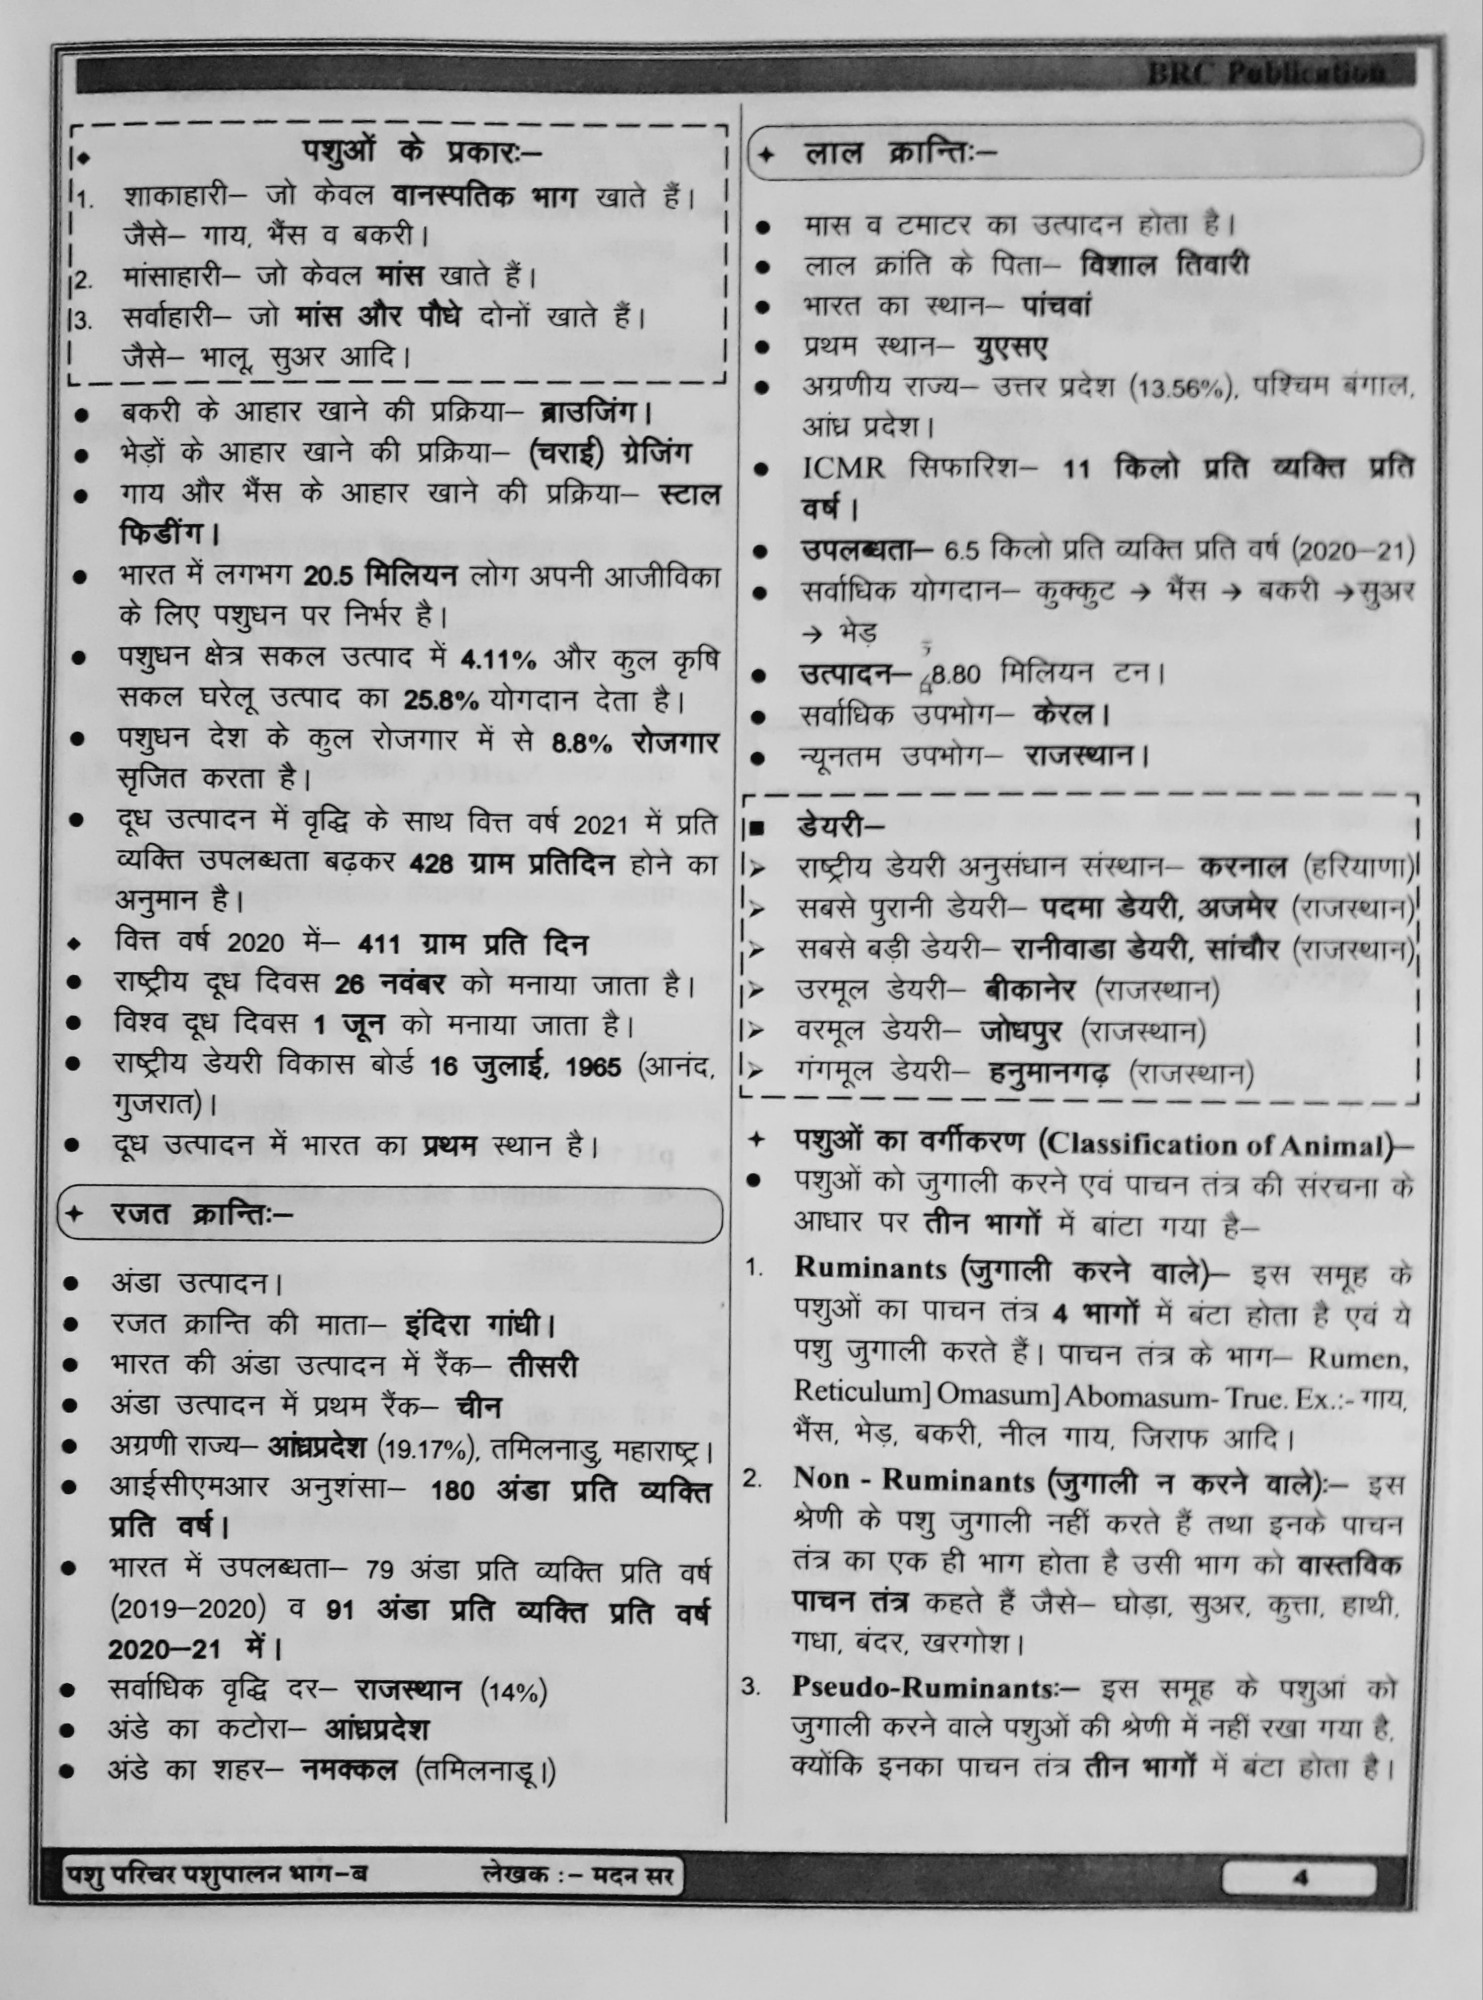 BRC Publication
पशुओं के प्रकारः–
1. शाकाहारी– जो केवल वानस्पतिक भाग खाते हैं।
जैसे– गाय, भैंस व बकरी।
2. मांसाहारी– जो केवल मांस खाते हैं।
3. सर्वाहारी– जो मांस और पौधे दोनों खाते हैं।
जैसे– भालू, सुअर आदि।
● बकरी के आहार खाने की प्रक्रिया– ब्राउजिंग।
● भेड़ों के आहार खाने की प्रक्रिया– (चराई) ग्रेजिंग
● गाय और भैंस के आहार खाने की प्रक्रिया– स्टाल
फिडींग।
● भारत में लगभग 20.5 मिलियन लोग अपनी आजीविका
के लिए पशुधन पर निर्भर है।
● पशुधन क्षेत्र सकल उत्पाद में 4.11% और कुल कृषि
सकल घरेलू उत्पाद का 25.8% योगदान देता है।
● पशुधन देश के कुल रोजगार में से 8.8% रोजगार
सृजित करता है।
● दूध उत्पादन में वृद्धि के साथ वित्त वर्ष 2021 में प्रति
व्यक्ति उपलब्धता बढ़कर 428 ग्राम प्रतिदिन होने का
अनुमान है।
◆ वित्त वर्ष 2020 में– 411 ग्राम प्रति दिन
● राष्ट्रीय दूध दिवस 26 नवंबर को मनाया जाता है।
● विश्व दूध दिवस 1 जून को मनाया जाता है।
● राष्ट्रीय डेयरी विकास बोर्ड 16 जुलाई, 1965 (आनंद,
गुजरात)।
● दूध उत्पादन में भारत का प्रथम स्थान है।
✦ रजत क्रान्तिः–
● अंडा उत्पादन।
● रजत क्रान्ति की माता– इंदिरा गांधी।
● भारत की अंडा उत्पादन में रैंक– तीसरी
● अंडा उत्पादन में प्रथम रैंक– चीन
● अग्रणी राज्य– आंध्रप्रदेश (19.17%), तमिलनाडु, महाराष्ट्र।
● आईसीएमआर अनुशंसा– 180 अंडा प्रति व्यक्ति
प्रति वर्ष।
● भारत में उपलब्धता– 79 अंडा प्रति व्यक्ति प्रति वर्ष
(2019–2020) व 91 अंडा प्रति व्यक्ति प्रति वर्ष
2020–21 में।
● सर्वाधिक वृद्धि दर– राजस्थान (14%)
● अंडे का कटोरा– आंध्रप्रदेश
● अंडे का शहर– नमक्कल (तमिलनाडू।)
✦ लाल क्रान्तिः–
● मास व टमाटर का उत्पादन होता है।
● लाल क्रांति के पिता– विशाल तिवारी
● भारत का स्थान– पांचवां
● प्रथम स्थान– युएसए
● अग्रणीय राज्य– उत्तर प्रदेश (13.56%), पश्चिम बंगाल,
आंध्र प्रदेश।
● ICMR सिफारिश– 11 किलो प्रति व्यक्ति प्रति
वर्ष।
● उपलब्धता– 6.5 किलो प्रति व्यक्ति प्रति वर्ष (2020–21)
● सर्वाधिक योगदान– कुक्कुट → भैंस → बकरी →सुअर
→ भेड़
● उत्पादन– 8.80 मिलियन टन।
● सर्वाधिक उपभोग– केरल।
● न्यूनतम उपभोग– राजस्थान।
■ डेयरी–
➢ राष्ट्रीय डेयरी अनुसंधान संस्थान– करनाल (हरियाणा)
➢ सबसे पुरानी डेयरी– पदमा डेयरी, अजमेर (राजस्थान)
➢ सबसे बड़ी डेयरी– रानीवाडा डेयरी, सांचौर (राजस्थान)
➢ उरमूल डेयरी– बीकानेर (राजस्थान)
➢ वरमूल डेयरी– जोधपुर (राजस्थान)
➢ गंगमूल डेयरी– हनुमानगढ़ (राजस्थान)
✦ पशुओं का वर्गीकरण (Classification of Animal)–
● पशुओं को जुगाली करने एवं पाचन तंत्र की संरचना के
आधार पर तीन भागों में बांटा गया है–
1. Ruminants (जुगाली करने वाले)– इस समूह के
पशुओं का पाचन तंत्र 4 भागों में बंटा होता है एवं ये
पशु जुगाली करते हैं। पाचन तंत्र के भाग– Rumen,
Reticulum] Omasum] Abomasum- True. Ex.:- गाय,
भैंस, भेड़, बकरी, नील गाय, जिराफ आदि।
2. Non - Ruminants (जुगाली न करने वाले)ः– इस
श्रेणी के पशु जुगाली नहीं करते हैं तथा इनके पाचन
तंत्र का एक ही भाग होता है उसी भाग को वास्तविक
पाचन तंत्र कहते हैं जैसे– घोड़ा, सुअर, कुत्ता, हाथी,
गधा, बंदर, खरगोश।
3. Pseudo-Ruminantsः– इस समूह के पशुआं को
जुगाली करने वाले पशुओं की श्रेणी में नहीं रखा गया है,
क्योंकि इनका पाचन तंत्र तीन भागों में बंटा होता है।
पशु परिचर पशुपालन भाग–ब लेखक :– मदन सर
4